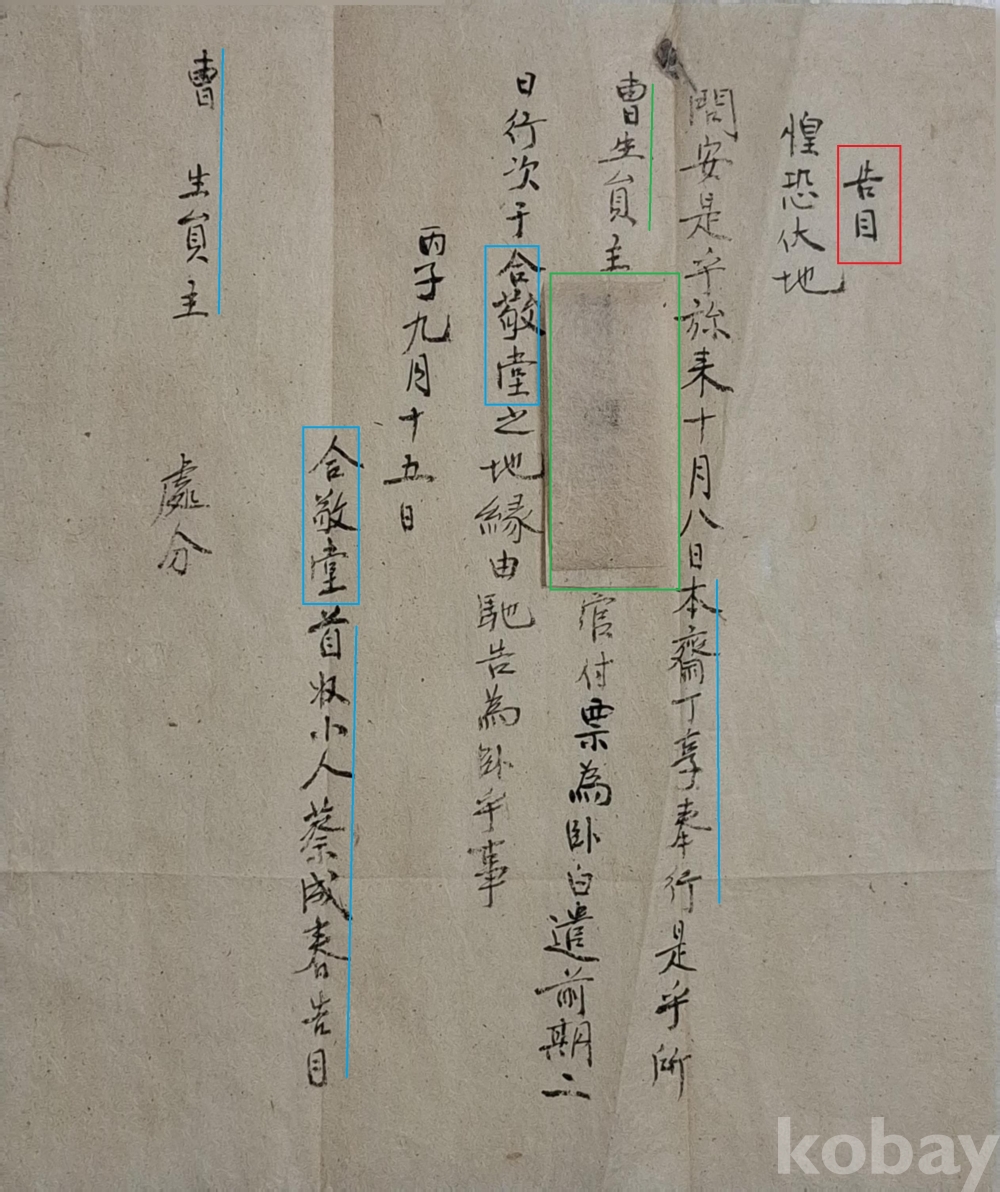 告目
惶恐伏地
問安是乎旀来十月八日本齋丁享奉行是乎所
曺生員主 官付票為卧白遣前期二
日行次于合敬堂之地緣由馳告為卧乎事
丙子九月十五日
合敬堂首奴小人蔡成春告目
曺 生員主
處分
kobay